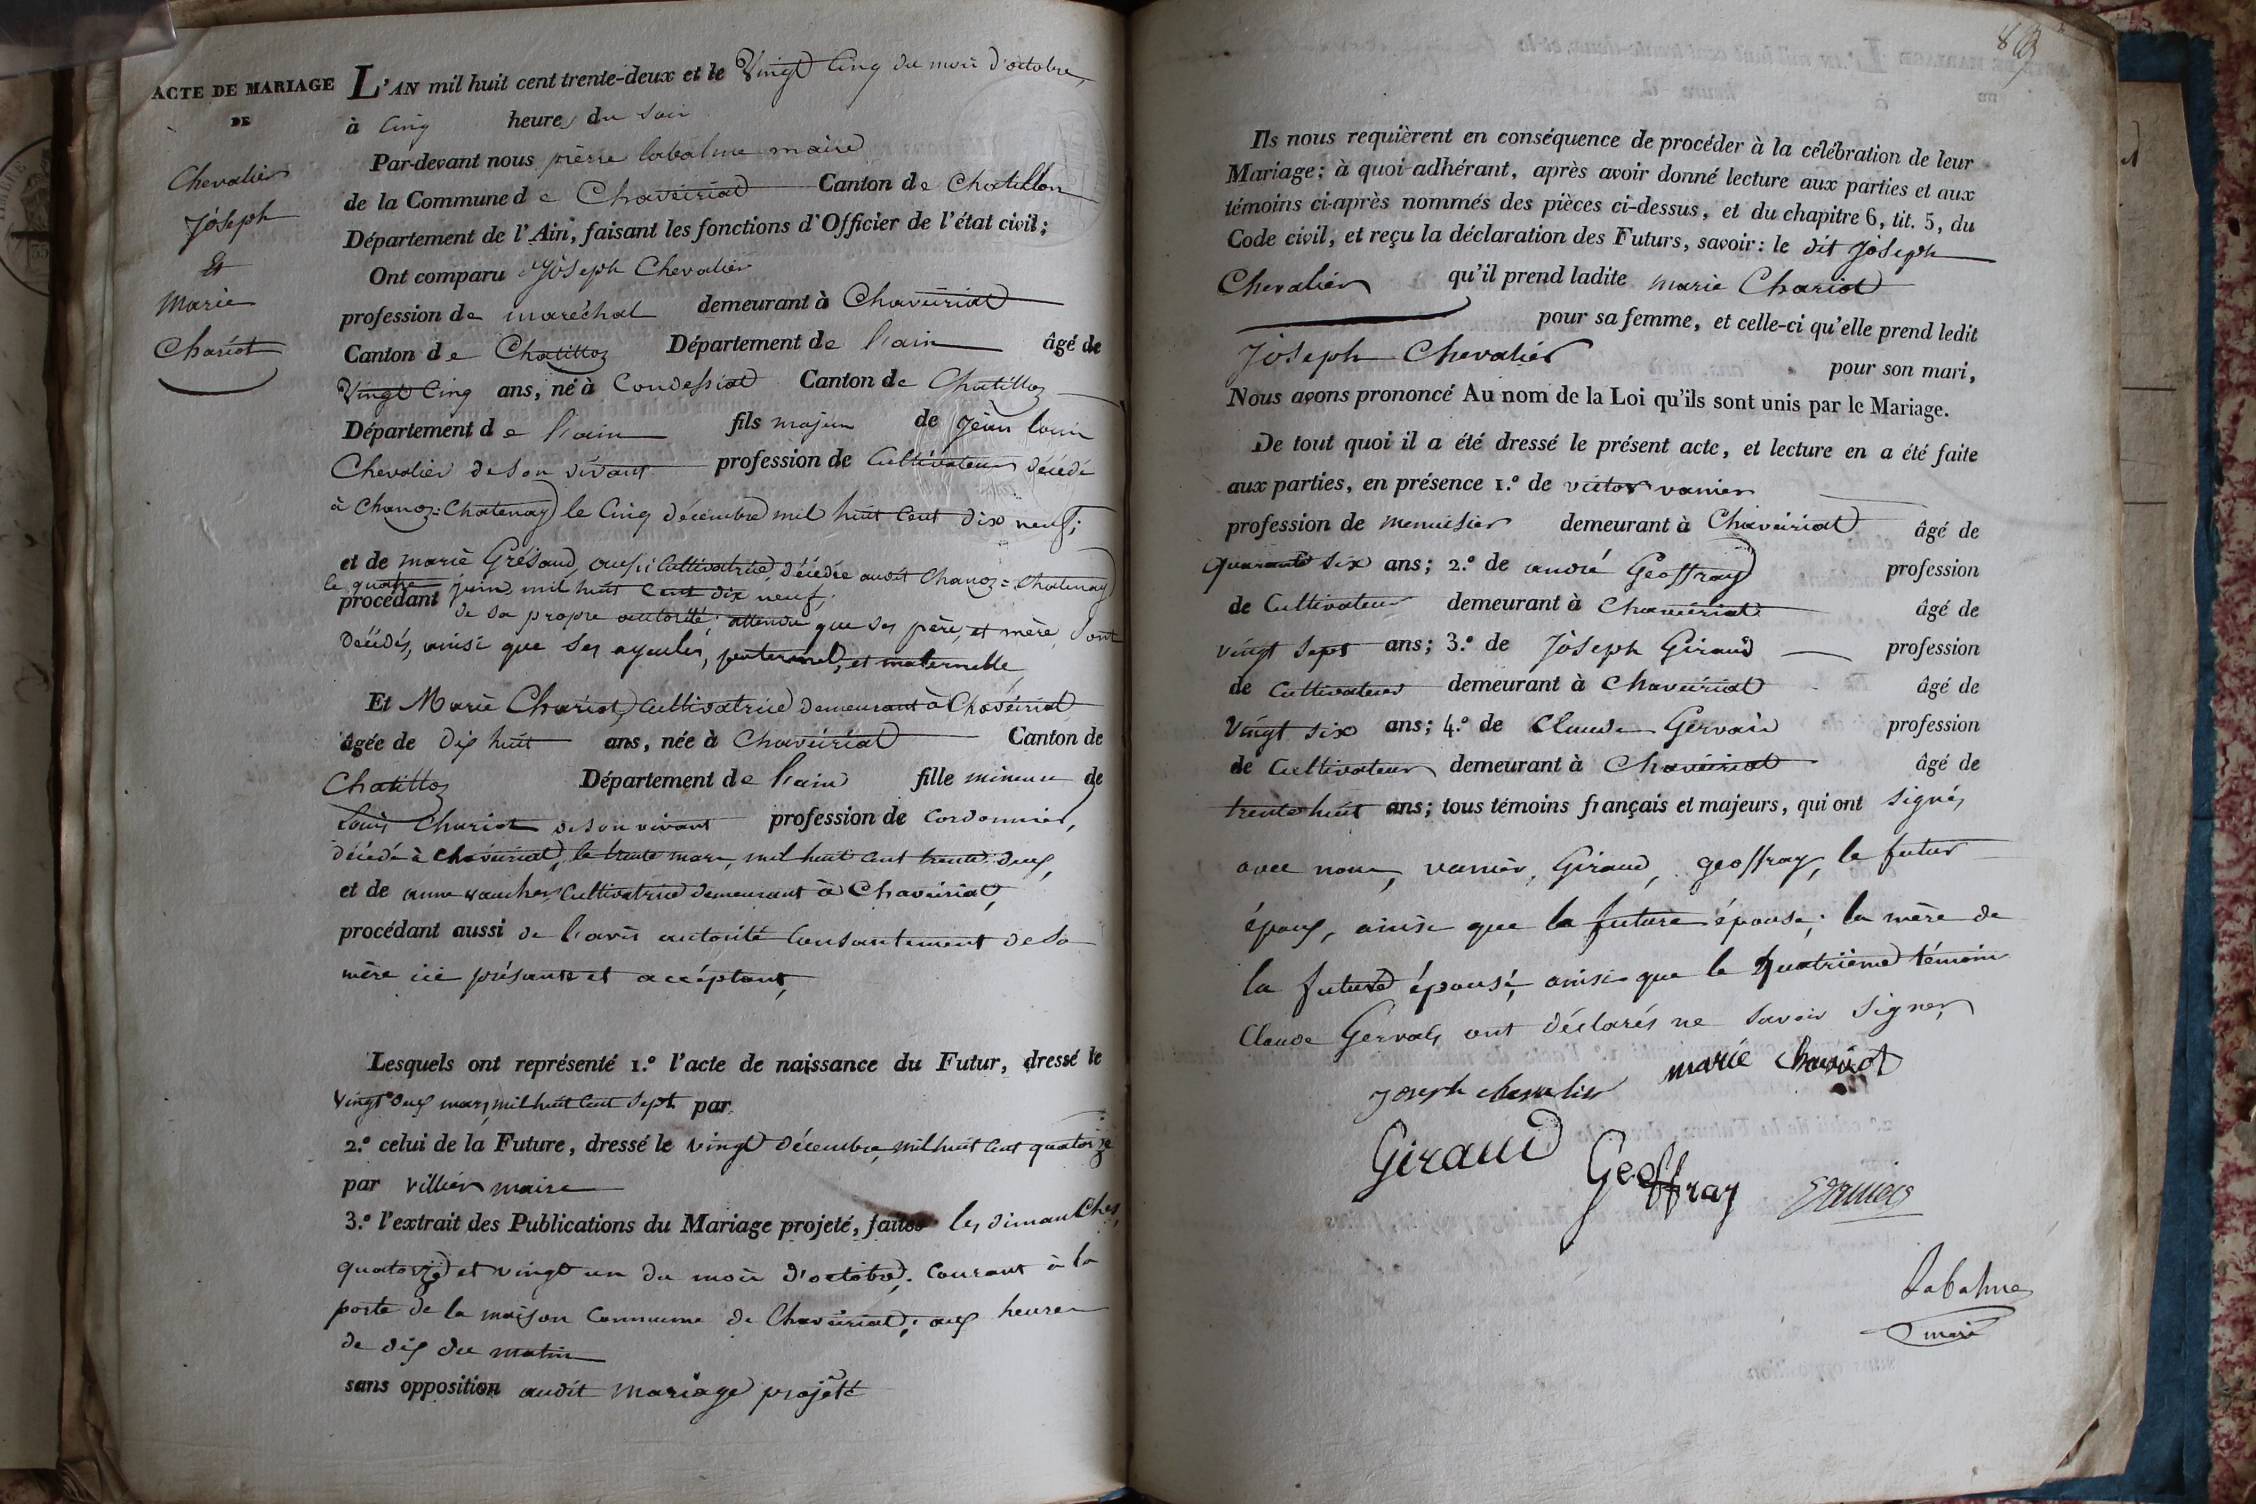 ACTE DE MARIAGE
DE
Chevalier
Joseph
Et
Marie
Chariot
L'AN mil huit cent trente-deux et le Vingt Cinq du mois d'octobre,
à Cinq heures du soir
Par-devant nous pièrre labalme maire
de la Commune de Chaveiriat Canton de Chatillon
Département de l'Ain, faisant les fonctions d'Officier de l'état civil;
Ont comparu Joseph Chevalier
profession de maréchal demeurant à Chaveiriat
Canton de Chatillon Département de l'ain âgé de
Vingt Cinq ans, né à Condessiat Canton de Chatillon
Département de l'ain fils majeur de jean louis
Chevalier de son vivant profession de Cultivateur décédé
à Chanoz=Chatenay le Cinq décembre mil huit Cent dix neuf;
et de marie Grésaud, aussi Cultivatrice, décédée audit Chanoz=Chatenay
le quatre juin mil huit Cent dix neuf;
procédant de sa propre autorité attendu que ses père, et mère, sont
décédés, ainsi que ses ayeules, paternel, et maternelle,
Et Marie Chariot, Cultivatrice demeurant à Chavéiriat
âgée de dix huit ans, née à Chaveiriat Canton de
Chatillon Département de l'ain fille mineure de
Louis Chariot de son vivant profession de Cordonnier,
décédé à Chavéiriat, le trente mars, mil huit cent trente deux,
et de anne vaucher Cultivatrice demeurant à Chaveiriat,
procédant aussi de l'avis autorité Consantement de sa
mère ici présante et accéptant,
Lesquels ont représenté 1.º l'acte de naissance du Futur, dressé le
vingt deux mars mil huit Cent sept par
2.º celui de la Future, dressé le vingt décembre, mil huit Cent quatorze
par villier maire
3.º l'extrait des Publications du Mariage projeté, faites les dimanches,
quatorze et vingt un du mois d'octobre, Courant à la
porte de la maison Commune de Chaveiriat; aux heures
de dix du matin
sans opposition audit mariage projété
Ils nous requièrent en conséquence de procéder à la célébration de leur
Mariage; à quoi adhérant, après avoir donné lecture aux parties et aux
témoins ci-après nommés des pièces ci-dessus, et du chapitre 6, tit. 5, du
Code civil, et reçu la déclaration des Futurs, savoir: le dit Joseph
Chevalier qu'il prend ladite marie Chariot
pour sa femme, et celle-ci qu'elle prend ledit
Joseph Chevalier pour son mari,
Nous avons prononcé Au nom de la Loi qu'ils sont unis par le Mariage.
De tout quoi il a été dressé le présent acte, et lecture en a été faite
aux parties, en présence 1.º de victor vanier
profession de menuisier demeurant à Chaveiriat âgé de
quarante six ans; 2.º de andré Geoffray profession
de Cultivateur demeurant à Chaveiriat âgé de
vingt sept ans; 3.º de Joseph Giraud profession
de Cultivateur demeurant à Chaveiriat âgé de
Vingt six ans; 4.º de Claude Gervais profession
de Cultivateur demeurant à Chaveiriat âgé de
trente huit ans; tous témoins français et majeurs, qui ont signés
avec nous, vanier, Giraud, geoffray, le futur
époux, ainsi que la future épouse; la mère de
la future épouse, ainsi que le Quatrième témoin
Claude Gervais ont déclarés ne savoir signer,
Joseph chevalier marie Chariot
Giraud Geoffray Vanier
Labalme
maire